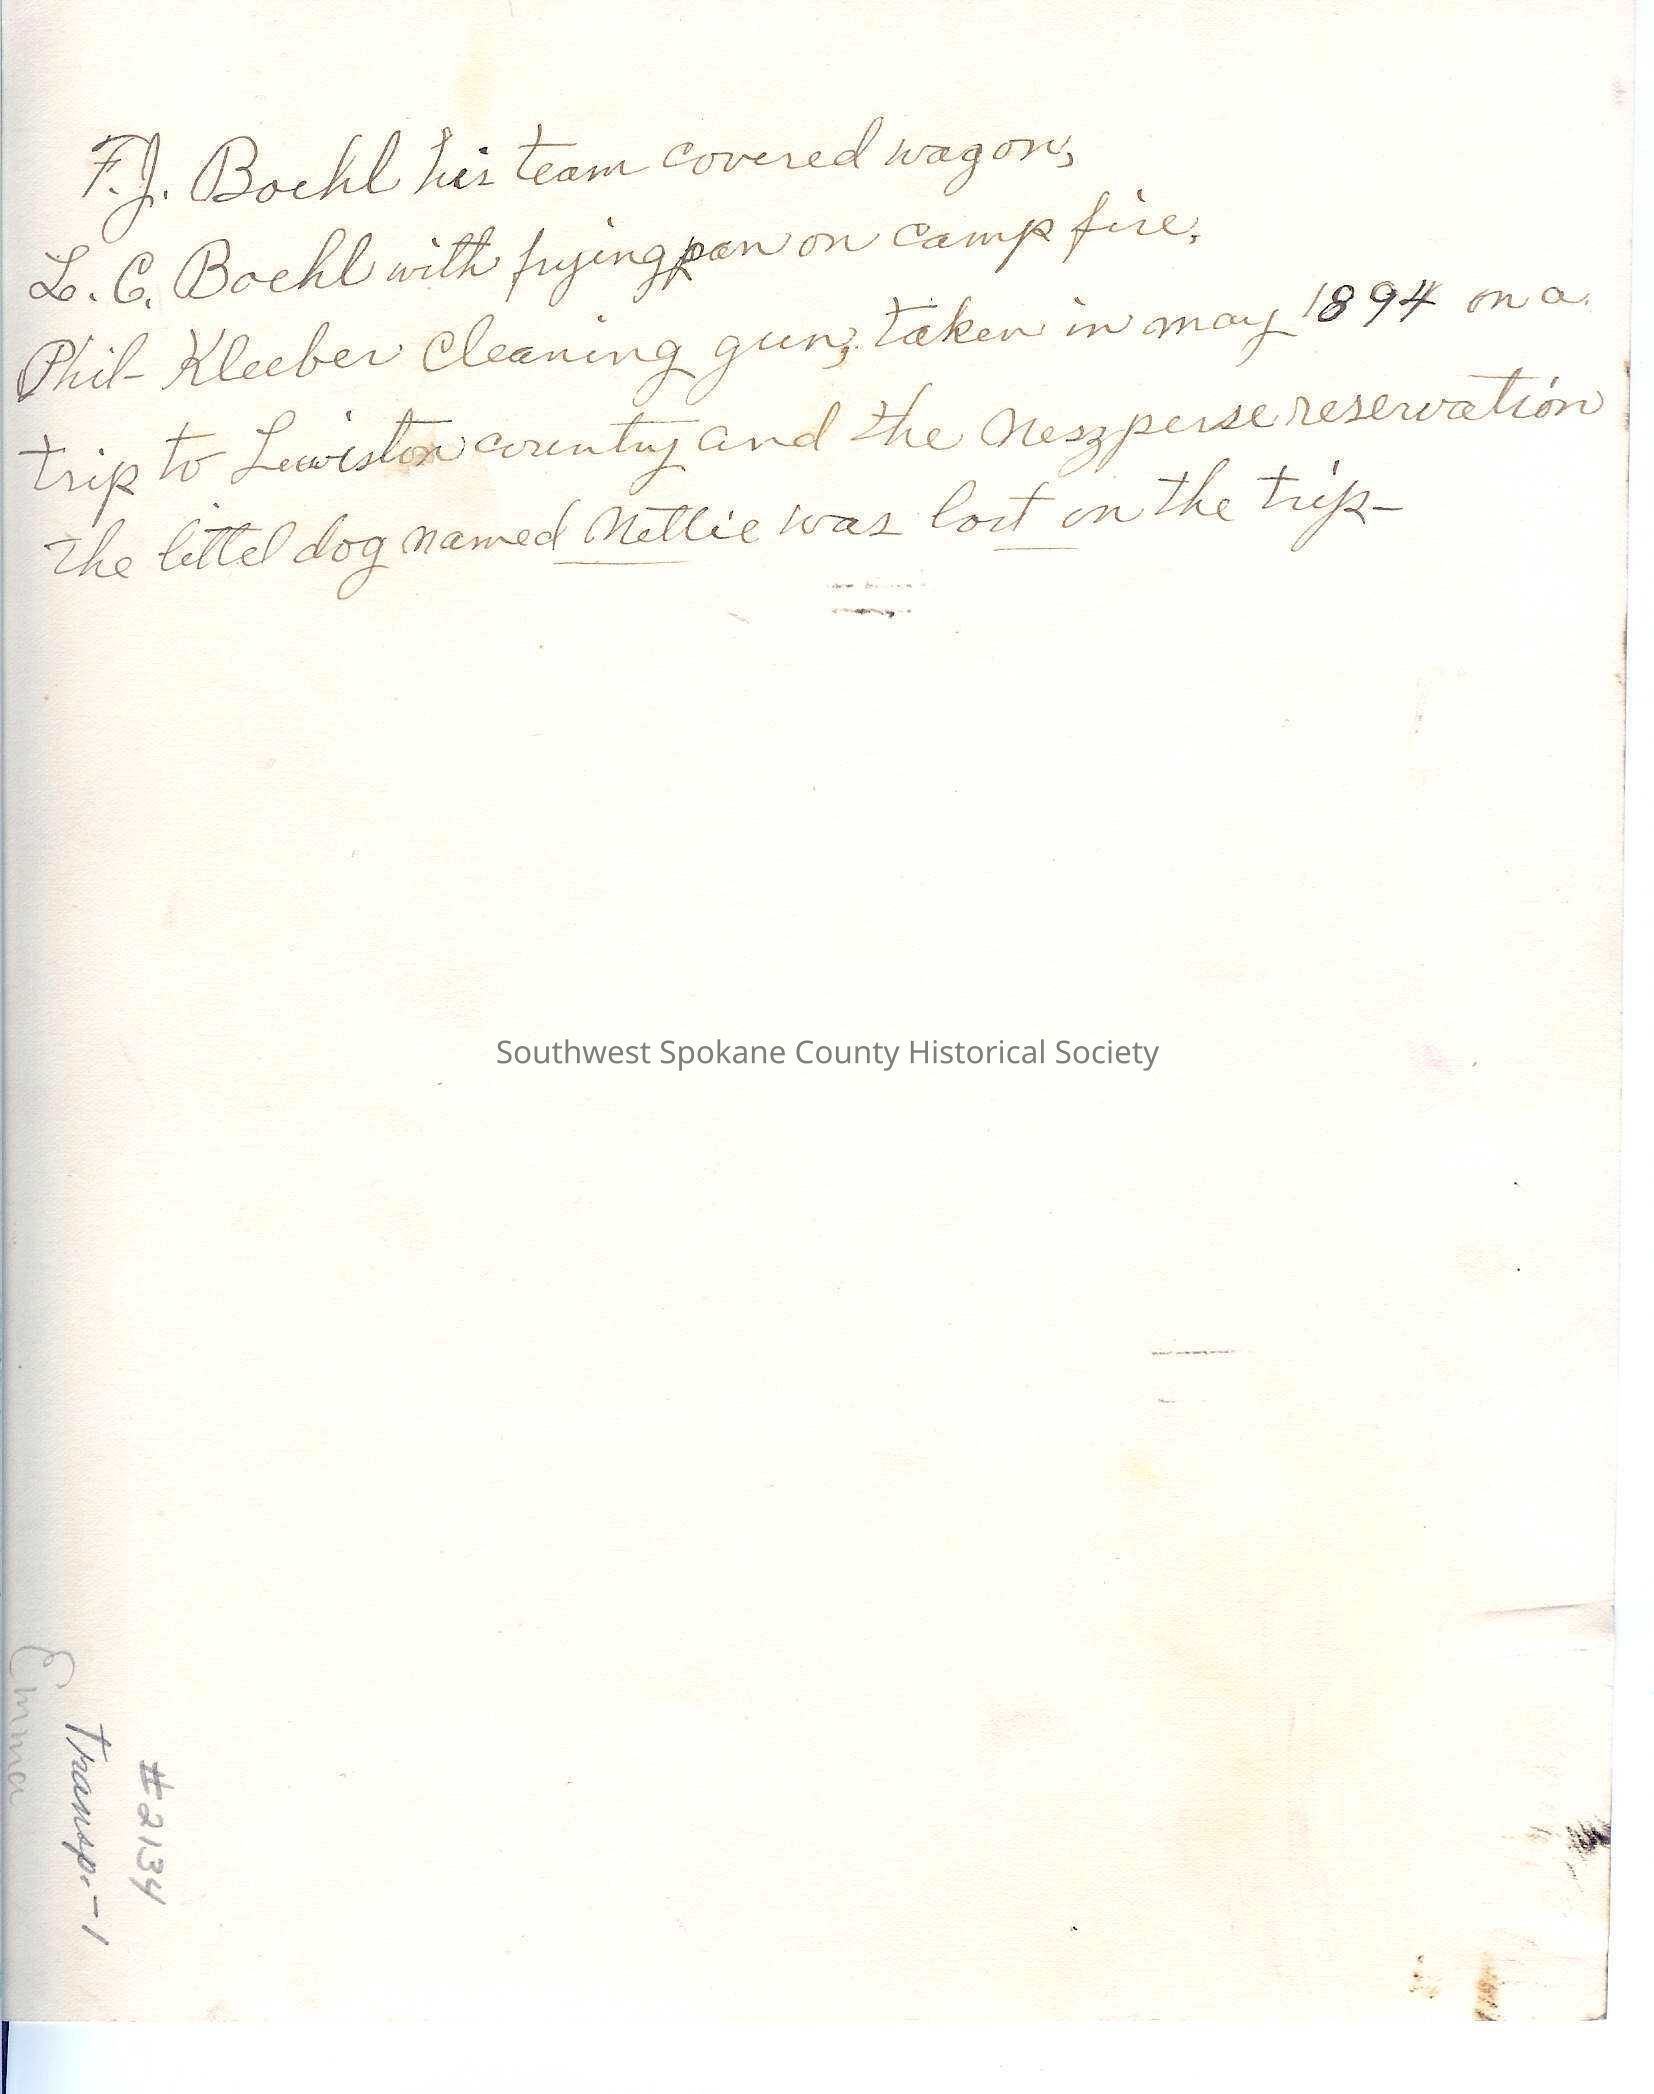 F.J. Boehl his team covered wagon,
L. C. Boehl with fryingpan on camp fire,
Phil- Kleeber Cleaning gun, taken in may 1894 on a
trip to Lewiston country and the Neszperse reservation
The littel dog named Nettie was lost on the trip-
Southwest Spokane County Historical Society
#2134
Transp.-1
Emma